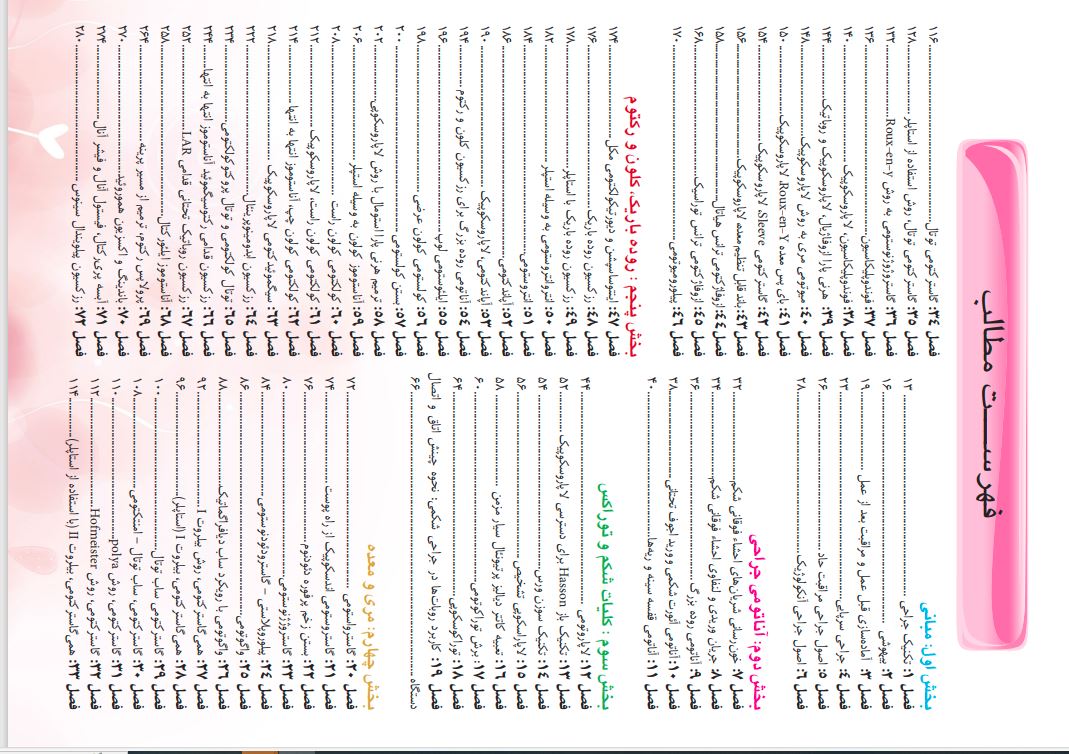 فهرست مطالب
بخش اول: مبانی
فصل ۱: تکنیک جراحی ........ ۱۳
فصل ۲: بیهوشی ........ ۱۶
فصل ۳: آماده‌سازی قبل عمل و مراقبت بعد از عمل ........ ۱۹
فصل ۴: جراحی سرپایی ........ ۲۳
فصل ۵: اصول جراحی مراقبت حاد ........ ۲۶
فصل ۶: اصول جراحی آنکولوژیک ........ ۲۸
بخش دوم: آناتومی جراحی
فصل ۷: خون‌رسانی شریان‌های احشاء فوقانی شکم ........ ۳۲
فصل ۸: جریان وریدی و لنفاوی احشاء فوقانی شکم ........ ۳۴
فصل ۹: آناتومی روده بزرگ ........ ۳۶
فصل ۱۰: آناتومی آئورت شکمی و ورید اجوف تحتانی ........ ۳۸
فصل ۱۱: آناتومی قفسه سینه و ریه‌ها ........ ۴۰
بخش سوم: کلیات شکم و توراکس
فصل ۱۲: لاپاروتومی ........ ۴۴
فصل ۱۳: تکنیک باز Hasson برای دسترسی لاپاروسکوپیک ........ ۵۲
فصل ۱۴: تکنیک سوزن ورس ........ ۵۴
فصل ۱۵: لاپاراسکوپی تشخیصی ........ ۵۶
فصل ۱۶: تعبیه کاتتر دیالیز پریتونئال سیار مزمن ........ ۵۸
فصل ۱۷: برش توراکوتومی ........ ۶۰
فصل ۱۸: توراکوسکوپی ........ ۶۴
فصل ۱۹: کاربرد روبات‌ها در جراحی شکمی: نحوه چینش اتاق و اتصال
دستگاه ........ ۶۶
بخش چهارم: مری و معده
فصل ۲۰: گاستروستومی ........ ۷۲
فصل ۲۱: گاستروستومی اندسکوپیک از راه پوست ........ ۷۴
فصل ۲۲: بستن زخم پرفوره دئودنوم ........ ۷۶
فصل ۲۳: گاستروژژنوستومی ........ ۸۰
فصل ۲۴: پیلوروپلاستی – گاسترودئودنوستومی ........ ۸۴
فصل ۲۵: واگوتومی ........ ۸۶
فصل ۲۶: واگوتومی با رویکرد ساب دیافراگماتیک ........ ۸۸
فصل ۲۷: همی‌گاسترکتومی، روش بیلروت I ........ ۹۲
فصل ۲۸: همی‌گاسترکتومی، بیلروت I (استاپلر) ........ ۹۶
فصل ۲۹: گاسترکتومی ساب توتال ........ ۱۰۰
فصل ۳۰: گاسترکتومی، ساب توتال – امنتکتومی ........ ۱۰۸
فصل ۳۱: گاسترکتومی، روش polya ........ ۱۱۰
فصل ۳۲: گاسترکتومی، روش Hofmeister ........ ۱۱۲
فصل ۳۳: همی‌گاسترکتومی، بیلروت II (با استفاده از استاپلر) ........ ۱۱۴
فصل ۳۴: گاسترکتومی توتال ........ ۱۱۶
فصل ۳۵: گاسترکتومی توتال، روش استفاده از استاپلر ........ ۱۲۸
فصل ۳۶: گاستروژژنوستومی به روش Roux-en-y ........ ۱۳۲
فصل ۳۷: فوندوپلیکاسیون ........ ۱۳۶
فصل ۳۸: فوندوپلیکاسیون، لاپاروسکوپیک ........ ۱۴۰
فصل ۳۹: هرنی پارا ازوفاژیال، لاپاروسکوپیک و روباتیک ........ ۱۴۴
فصل ۴۰: میوتومی مری به روش لاپاروسکوپیک ........ ۱۴۸
فصل ۴۱: بای پس معده Roux-en-Y، لاپاروسکوپیک ........ ۱۵۰
فصل ۴۲: گاسترکتومی Sleeve، لاپاروسکوپیک ........ ۱۵۴
فصل ۴۳: باند قابل تنظیم معده، لاپاروسکوپیک ........ ۱۵۶
فصل ۴۴: ازوفاژکتومی ترانس هیاتال ........ ۱۵۸
فصل ۴۵: ازوفاژکتومی ترانس توراسیک ........ ۱۶۸
فصل ۴۶: پیلورومیوتومی ........ ۱۷۰
بخش پنجم : روده باریک، کلون و رکتوم
فصل ۴۷: اینتوساسپشن و دیورتیکولکتومی مکل ........ ۱۷۴
فصل ۴۸: رزکسیون روده باریک ........ ۱۷۶
فصل ۴۹: رزکسیون روده باریک با استاپلر ........ ۱۷۸
فصل ۵۰: انترو‌انتروستومی به وسیله استپلر ........ ۱۸۲
فصل ۵۱: انتروستومی ........ ۱۸۴
فصل ۵۲: آپاندکتومی ........ ۱۸۶
فصل ۵۳: آپاندکتومی، لاپاروسکوپیک ........ ۱۹۰
فصل ۵۴: آناتومی روده بزرگ برای رزکسیون کلون و رکتوم ........ ۱۹۴
فصل ۵۵: ایلئوستومی لوپ ........ ۱۹۶
فصل ۵۶: کولستومی کولون عرضی ........ ۱۹۸
فصل ۵۷: بستن کولستومی ........ ۲۰۰
فصل ۵۸: ترمیم هرنی پارا استومال با روش لاپاروسکوپی ........ ۲۰۲
فصل ۵۹: آناستوموز کولون به وسیله استپلر ........ ۲۰۶
فصل ۶۰: کولکتومی کولون راست ........ ۲۰۸
فصل ۶۱: کولکتومی کولون راست، لاپاروسکوپیک ........ ۲۱۲
فصل ۶۲: کولکتومی کولون چپ، آناستوموز انتها به انتها ........ ۲۱۴
فصل ۶۳: سیگموئیدکتومی لاپاروسکوپیک ........ ۲۱۸
فصل ۶۴: رزکسیون ابدومینوپرینئال ........ ۲۲۲
فصل ۶۵: توتال کولکتومی و توتال پروکتوکولکتومی ........ ۲۳۴
فصل ۶۶: رزکسیون قدامی رکتوسیگموئید آناستوموز انتها به انتها ........ ۲۴۴
فصل ۶۷: رزکسیون روباتیک تحتانی قدامی LAR ........ ۲۵۲
فصل ۶۸: آناستوموز ایلئورکتال ........ ۲۵۸
فصل ۶۹: پرولاپس رکتوم، ترمیم از مسیر پرینه ........ ۲۶۴
فصل ۷۰: باندینگ و اکسزیون هموروئید ........ ۲۷۰
فصل ۷۱: آبسه پری‌رکتال، فیستول آنال و فیشر آنال ........ ۲۷۴
فصل ۷۲: رزکسیون پیلونیدال سینوس ........ ۲۸۰